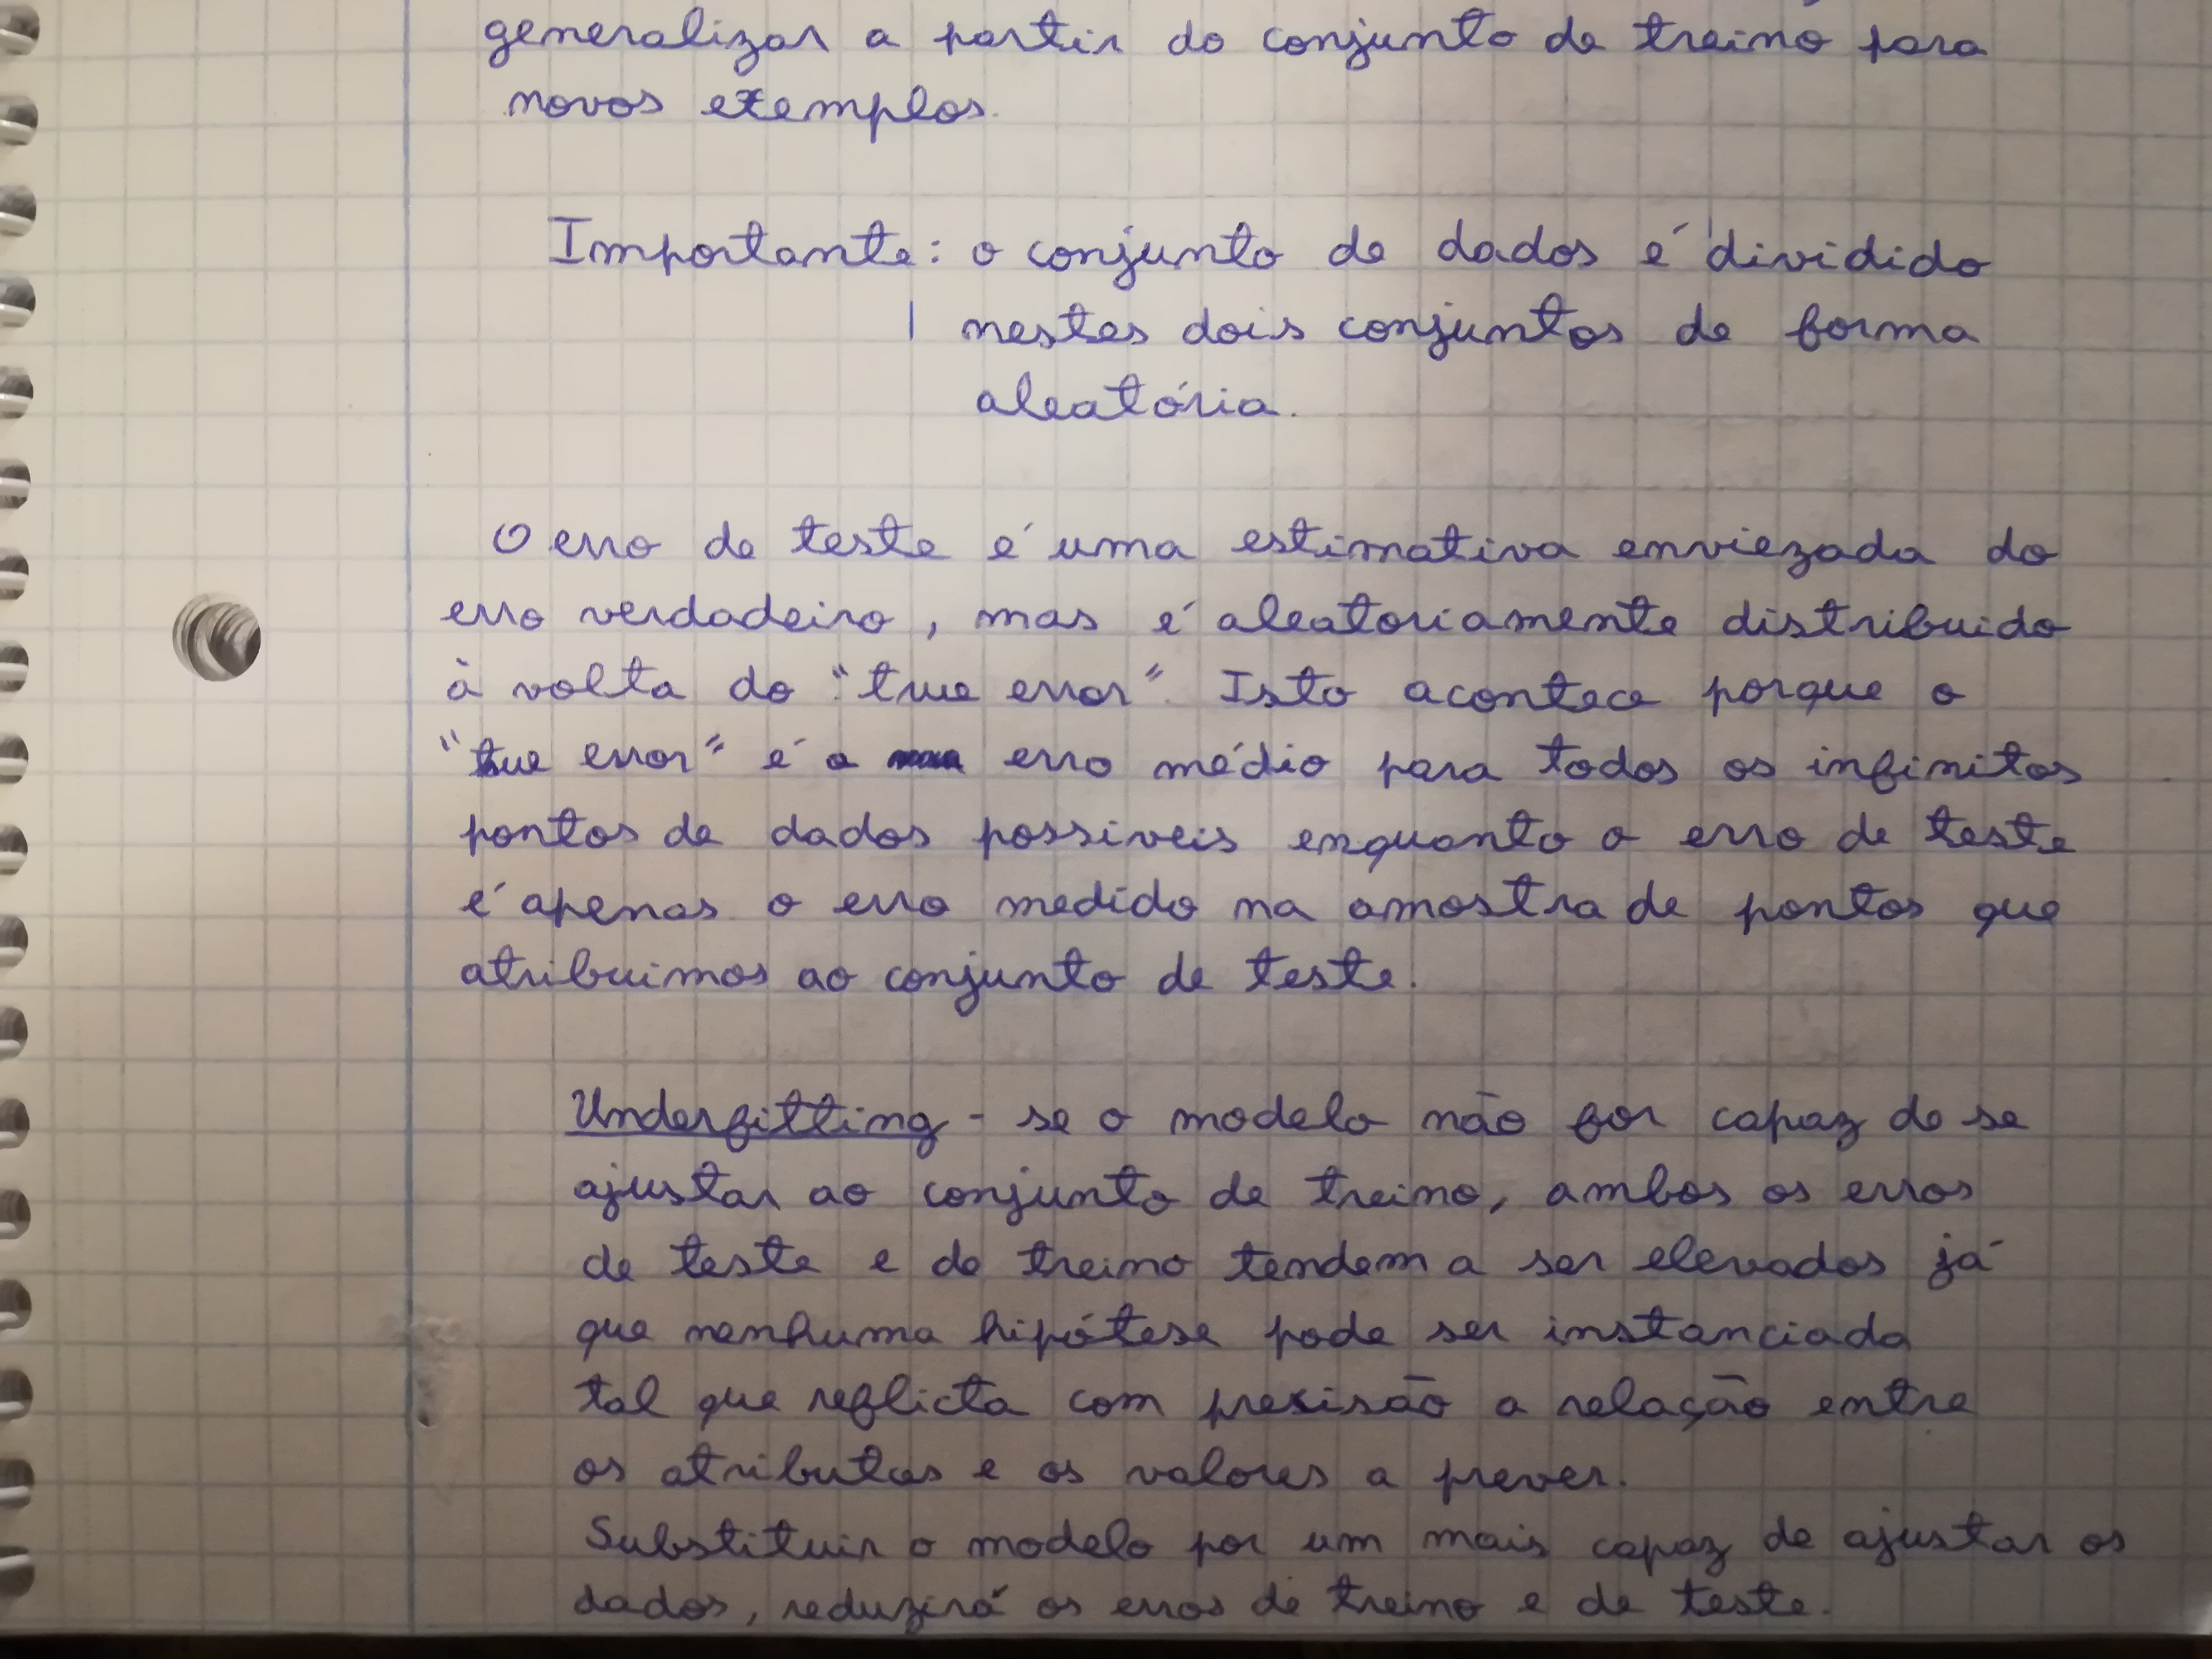 generalizar a partir do conjunto de treino para
novos exemplos.
Importante: o conjunto de dados é dividido
nestes dois conjuntos de forma
aleatória.
O erro de teste é uma estimativa enviezada do
erro verdadeiro, mas é aleatoriamente distribuido
à volta do "true error". Isto acontece porque o
"true error" é o erro médio para todos os infinitos
pontos de dados possiveis enquanto o erro de teste
é apenas o erro medido na amostra de pontos que
atribuimos ao conjunto de teste.
Underfitting - se o modelo não for capaz de se
ajustar ao conjunto de treino, ambos os erros
de teste e de treino tendem a ser elevados já
que nenhuma hipótese pode ser instanciada
tal que reflicta com precisão a relação entre
os atributos e os valores a prever.
Substituir o modelo por um mais capaz de ajustar os
dados, reduzirá os erros de treino e de teste.